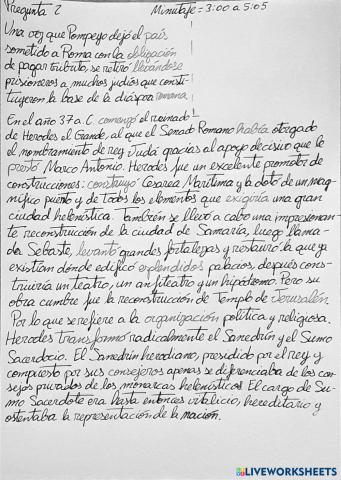 Pregunta 2 Minutaje = 3:00 a 5:05
Una vez que Pompeyo dejó el país
sometido a Roma con la obligación
de pagar tributo, se retiró llevándose
prisioneros a muchos judíos que consti-
tuyeron la base de la diáspora romana.
En el año 37 a.C. comenzó el reinado
de Herodes el Grande, al que el Senado Romano había otorgado
el nombramiento de rey Judá gracias al apoyo decisivo que le
prestó Marco Antonio. Herodes fue un excelente promotor de
construcciones: construyó Cesarea Marítima y la dotó de un mag-
nífico puerto y de todos los elementos que exigiría una gran
ciudad helenística. También se llevó a cabo una impresionan-
te reconstrucción de la ciudad de Samaría, luego llama-
da Sebaste, levantó grandes fortalezas y restauró la que ya
existían dónde edificó espléndidos palacios, después cons-
truiría un teatro, un anfiteatro y un hipódromo. Pero su
obra cumbre fue la reconstrucción de Templo de Jerusalén.
Por lo que se refiere a la organización política y religiosa.
Herodes transformó radicalmente el Sanedrín y el Sumo
Sacerdocio. El Sanedrín herodiano, presidido por el rey y
compuesto por sus consejeros apenas se diferenciaba de los con-
sejos privados de los monarcas helenísticos. El cargo de Su-
mo Sacerdote era hasta entonces vitalicio, hereditario y
ostentaba la representación de la nación.
LIVEWORKSHEETS